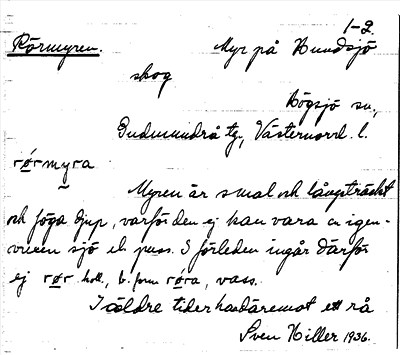 1-2.
Rörmyren. Myr på Hundsjö
skog
Högsjö sn.,
Gudmundrå tg, Västernorrl. l.
rørmyra
Myren är smal och långsträckt
och föga djup, varför den ej kan vara en igen-
vuxen sjö el. puss. I förleden ingår därför
ej rør koll., b. form røra, vass.
I äldre tider har däremot ett rå
Sven Hiller 1936.